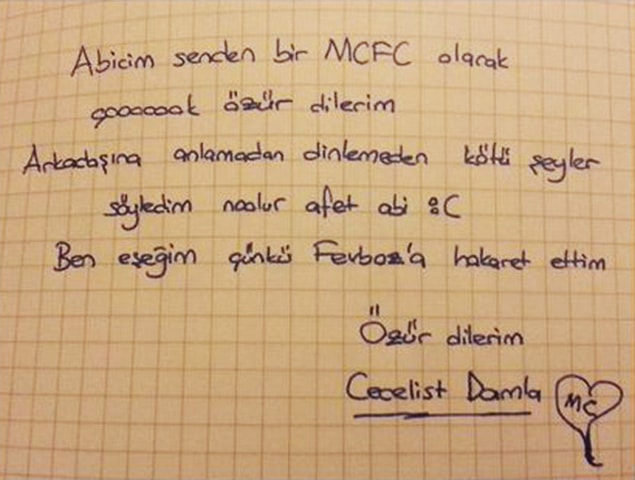 Abicim senden bir MCFC olarak
çooooook özür dilerim
Arkadaşına anlamadan dinlemeden kötü şeyler
söyledim noolur afet abi :C
Ben eşeğim çünkü Fevboz'a hakaret ettim
Özür dilerim
Cecelist Damla
MC